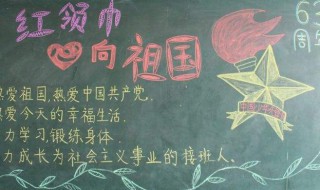 红领巾
心向祖国
63
周年
热爱祖国,热爱中国共产党.
热爱今天的幸福生活.
力学习锻练身体.
力成长为社会主义事业的接班人.